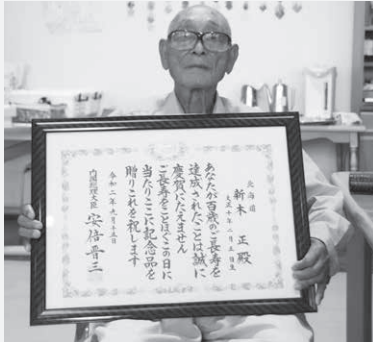 北海道
新木 正 殿
大正十年二月五日生
あなたが百歳のご長寿を
達成されたことは誠に
慶賀にたえません
ご長寿をことほぐこの日に
当たりここに記念品を
贈りこれを祝します
令和二年九月十五日
内閣総理大臣 安倍晋三